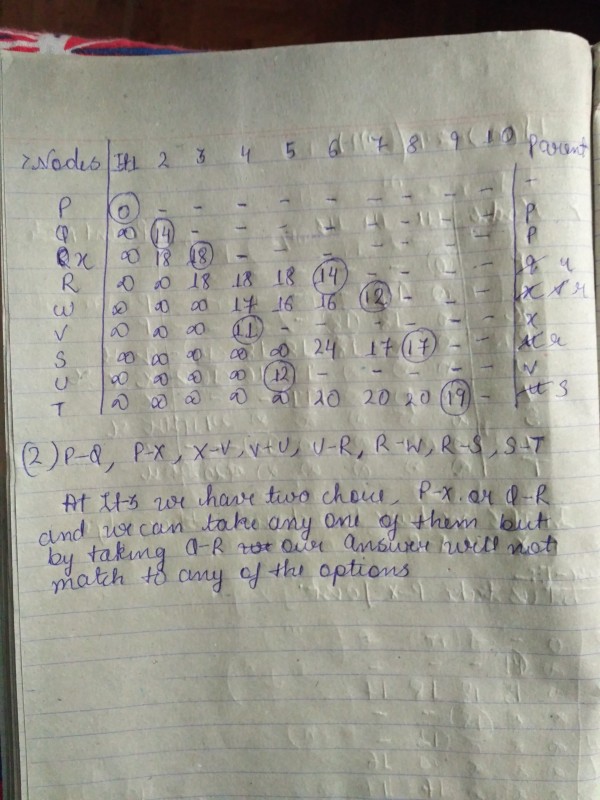 Nodes It1 2 3 4 5 6 7 8 9 10 parent
P 0 - - - - - - - - - -
Q ∞ 14 - - - - - - - - P
X ∞ 18 18 - - - - - - P
R ∞ ∞ 18 18 18 14 - - - - u
W ∞ ∞ ∞ 17 16 16 12 - - - r
V ∞ ∞ ∞ 11 - - - - - - x
S ∞ ∞ ∞ ∞ ∞ 24 17 17 - -
U ∞ ∞ ∞ ∞ 12 - - - - - v
T ∞ ∞ ∞ ∞ ∞ 20 20 20 19 - S
(2) P-Q, P-X, X-V, V-U, U-R, R-W, R-S, S-T
At It-3 we have two choie, P-X or Q-R
and we can take any one of them but
by taking Q-R our answer will not
match to any of the options